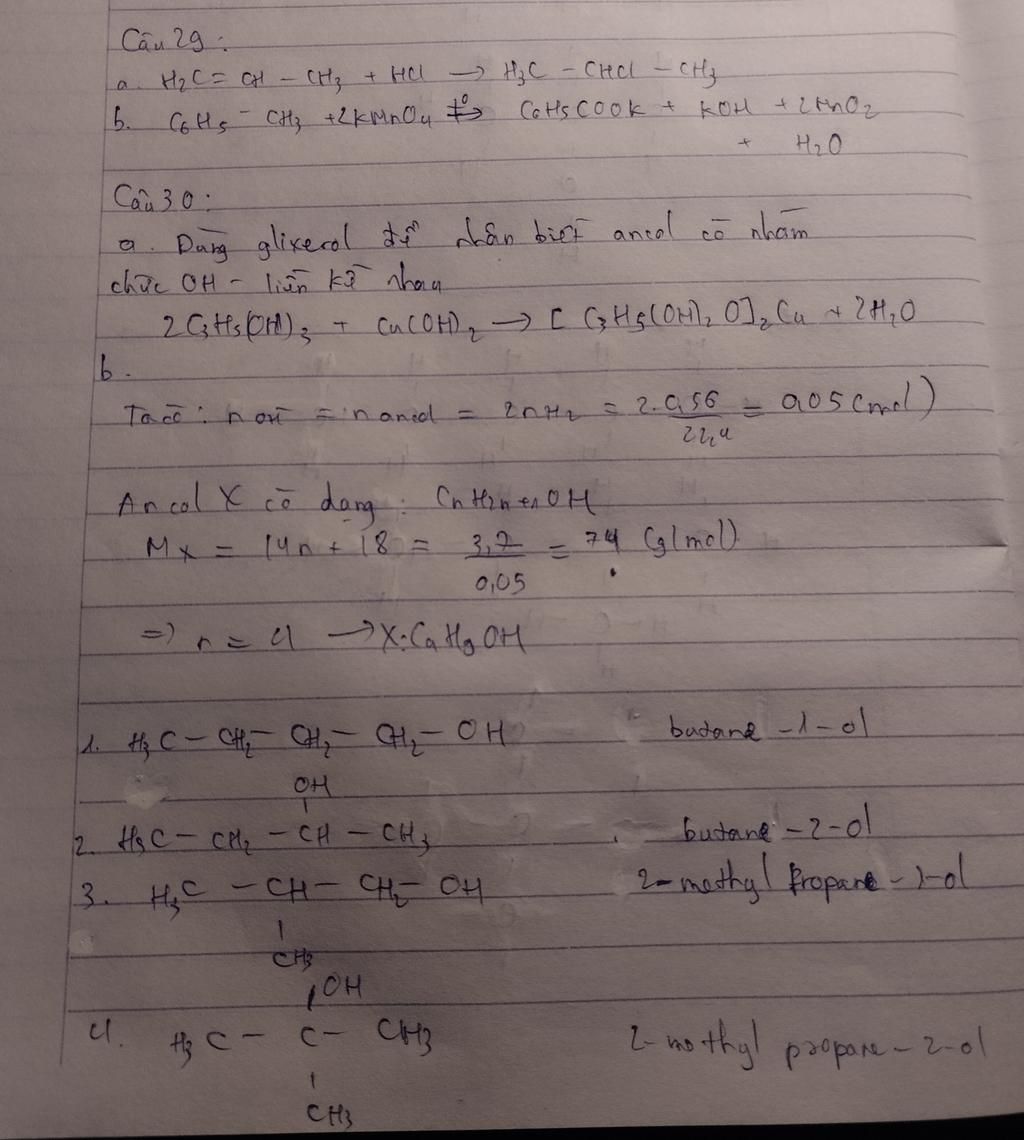 Câu 29:
a. H₂C = CH – CH₃ + HCl → H₃C – CHCl – CH₃
b. C₆H₅ – CH₃ + 2KMnO₄ –t°→ C₆H₅COOK + KOH + 2MnO₂
+ H₂O
Câu 30:
a. Dùng glixerol để nhân biết ancol có nhóm
chức OH – liền kề nhau
2C₃H₅(OH)₃ + Cu(OH)₂ → [C₃H₅(OH)₂O]₂Cu + 2H₂O
b.
Ta có: n OH = n ancol = 2nH₂ = 2.0,56/22,4 = 0,05 (mol)
Ancol X có dạng: CnH2n+1OH
Mx = 14n + 18 = 3,7/0,05 = 74 (g/mol)
=> n = 4 → X: C₄H₉OH
1. H₃C – CH₂ – CH₂ – CH₂ – OH butane – 1 – ol
OH
2. H₃C – CH₂ – CH – CH₃ butane – 2 – ol
3. H₃C – CH – CH₂ – OH 2 – methyl propane – 1 – ol
CH₃
OH
4. H₃C – C – CH₃ 2 – methyl propane – 2 – ol
CH₃